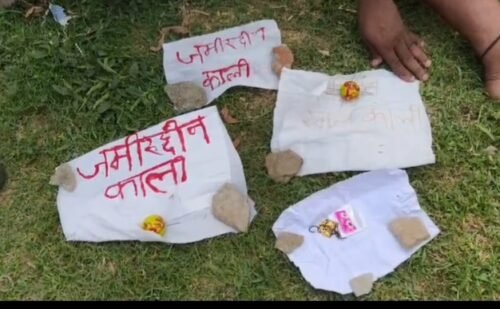 जमीरद्दीन
काली
जमीरद्दीन
काली
काली